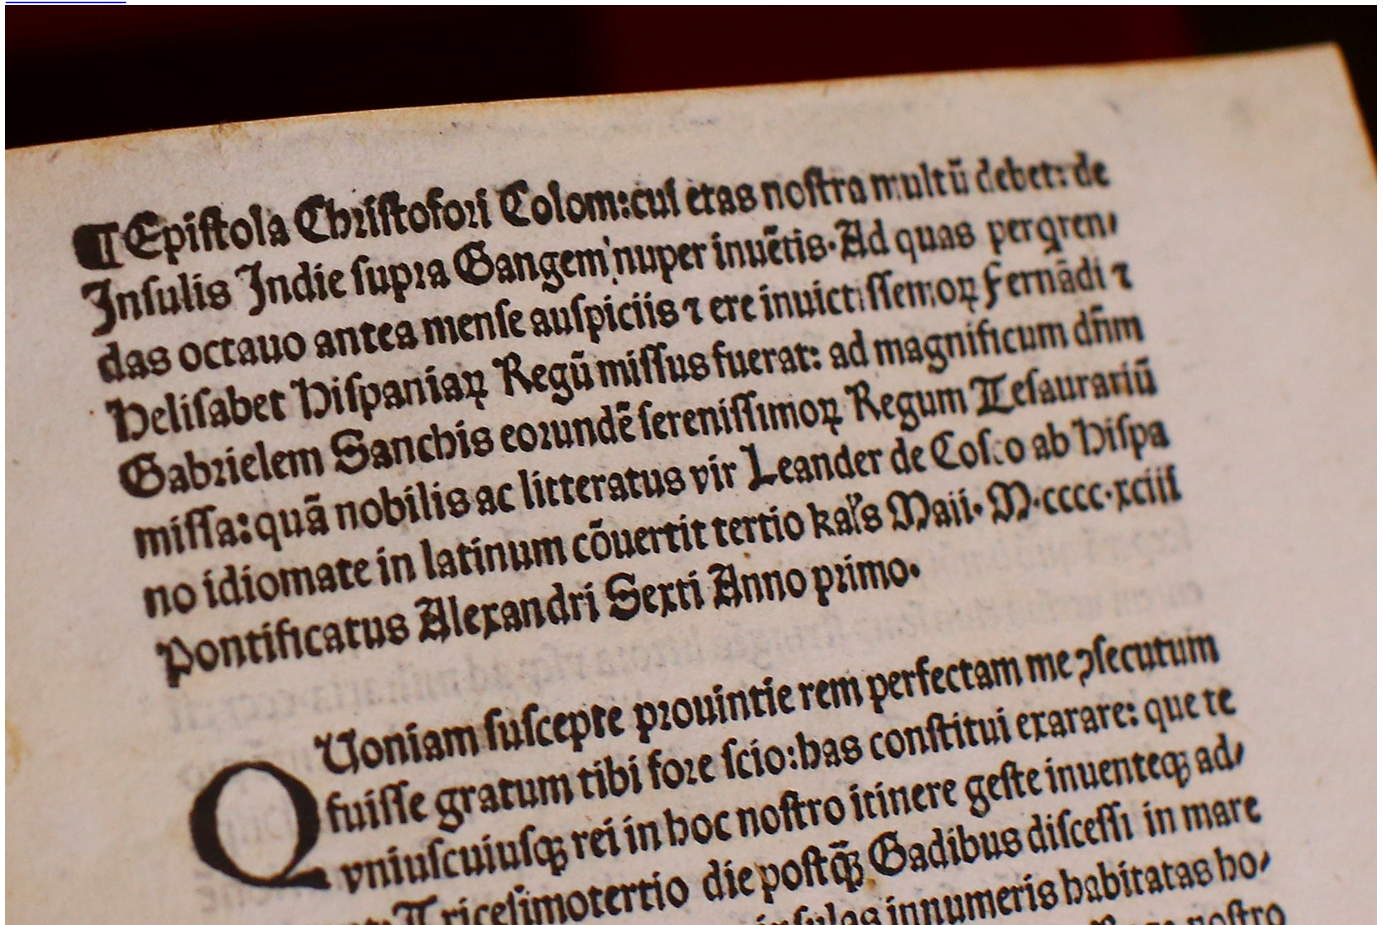 ¶ Epiſtola Chriſtofori Colom: cui etas noſtra multũ debet: de
Inſulis Indie ſupra Gangem nuper inuẽtis. Ad quas perqren⸗
das octauo antea menſe auſpiciis ⁊ ere inuictiſſemoꝝ Fernãdi ⁊
Heliſabet Hiſpaniaꝝ Regũ miſſus fuerat: ad magnificum dñm
Gabrielem Sanchis eorundẽ ſereniſſimoꝝ Regum Teſaurariũ
miſſa: quã nobilis ac litteratus vir Leander de Coſco ab Hiſpa
no idiomate in latinum cõuertit tertio kal's Maii. M.cccc.xciii
Pontificatus Alexandri Sexti Anno primo.
QUoniam ſuſcepte prouintie rem perfectam me ꝯſecutum
fuiſſe gratum tibi fore ſcio: has conſtitui exarare: que te
vniuſcuiuſqꝫ rei in hoc noſtro itinere geſte inuenteqꝫ ad⸗
Triceſimotertio die poſtq̃ꝫ Gadibus diſceſſi in mare
inſulas innumeris habitatas ho⸗
noſtro